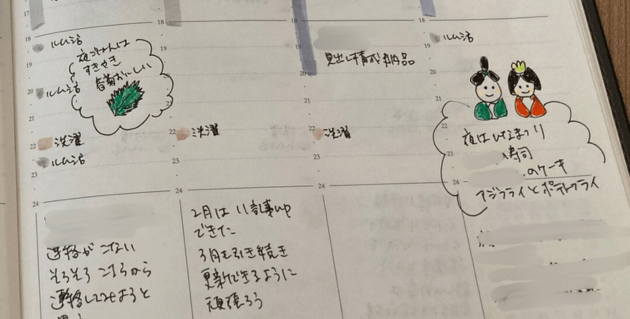 17
18
18
ルム活
夜ごはんは
すきやき
春菊おいしい
ルム活
洗濯
ルム活
22
23
24
連絡がこない
そろそろこちらから
連絡してみようと
思う
22
洗濯
24
2月は11記事up
できた
3月も引き続き
更新できるように
頑張ろう
見出し作成納品
22
洗濯
24
ルム活
19
20
21
22
23
24
夜はひなまつり
寿司
のケーキ
アジフライとポテトフライ